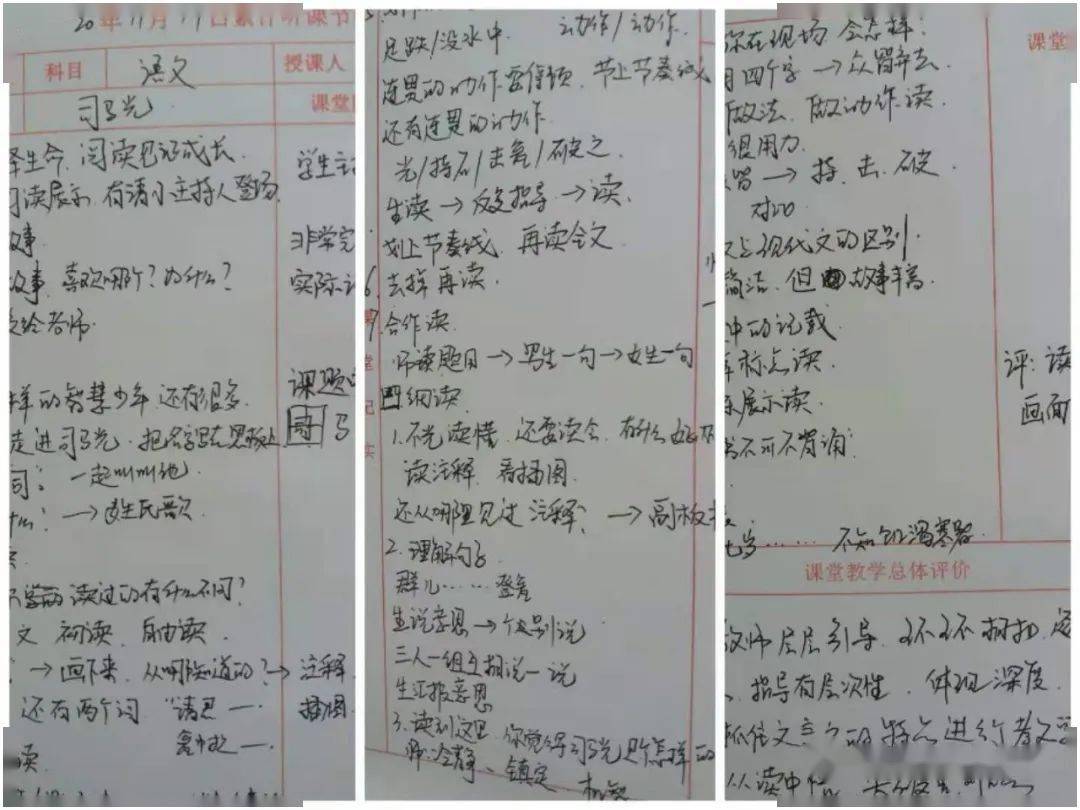 20 年 11月 19日累计听课节
科目 语文 授课人
司马光 课堂
生命,阅读见证成长 学生主
读展示,有请小主持人登场
故事 非学完
故事,喜欢哪个?为什么? 实际
给老师
样的智慧少年还有很多 课题
走进司马光,把名字写在黑板上 司马
一起叫叫他
→ 姓氏歌
读过的有什么不同?
文 初读,自由读.
→画下来,从哪知道的?→ 注释
还有两个词 插图
读
足跌/没水中. 动作/动作.
连贯的动作要停顿,节上节奏线
还有连贯的动作.
光/持石/击瓮/破之.
生读 → 反复指导 → 读.
划上节奏线,再读全文
6. 去掉再读.
7. 合作读.
师读题目 → 男生一句 → 女生一句
四细读.
1. 不光读懂,还要读会,有什么好
读注释,看插图.
还从哪里见过 注释? → 副板
2. 理解句子
群儿……登瓮
生说意思 → 个别说
三人一组互相说一说
生汇报意思
3. 读到这里,你觉得司马光是个怎样的
师:冷静、镇定
你在现场 会怎样? 课堂
四个字 → 众皆弃去
做法,做动作读
很用力.
皆 → 持、击、破
对比
文与现代文的区别
简洁,但 故事丰富
中的记载
标点读.
展示读. 评:读
不可不背诵 画面
七岁……不知饥渴寒暑
课堂教学总体评价
教师层层引导,环环相扣,
指导有层次性,体现深度
抓住文言文的特点进行
从读中悟